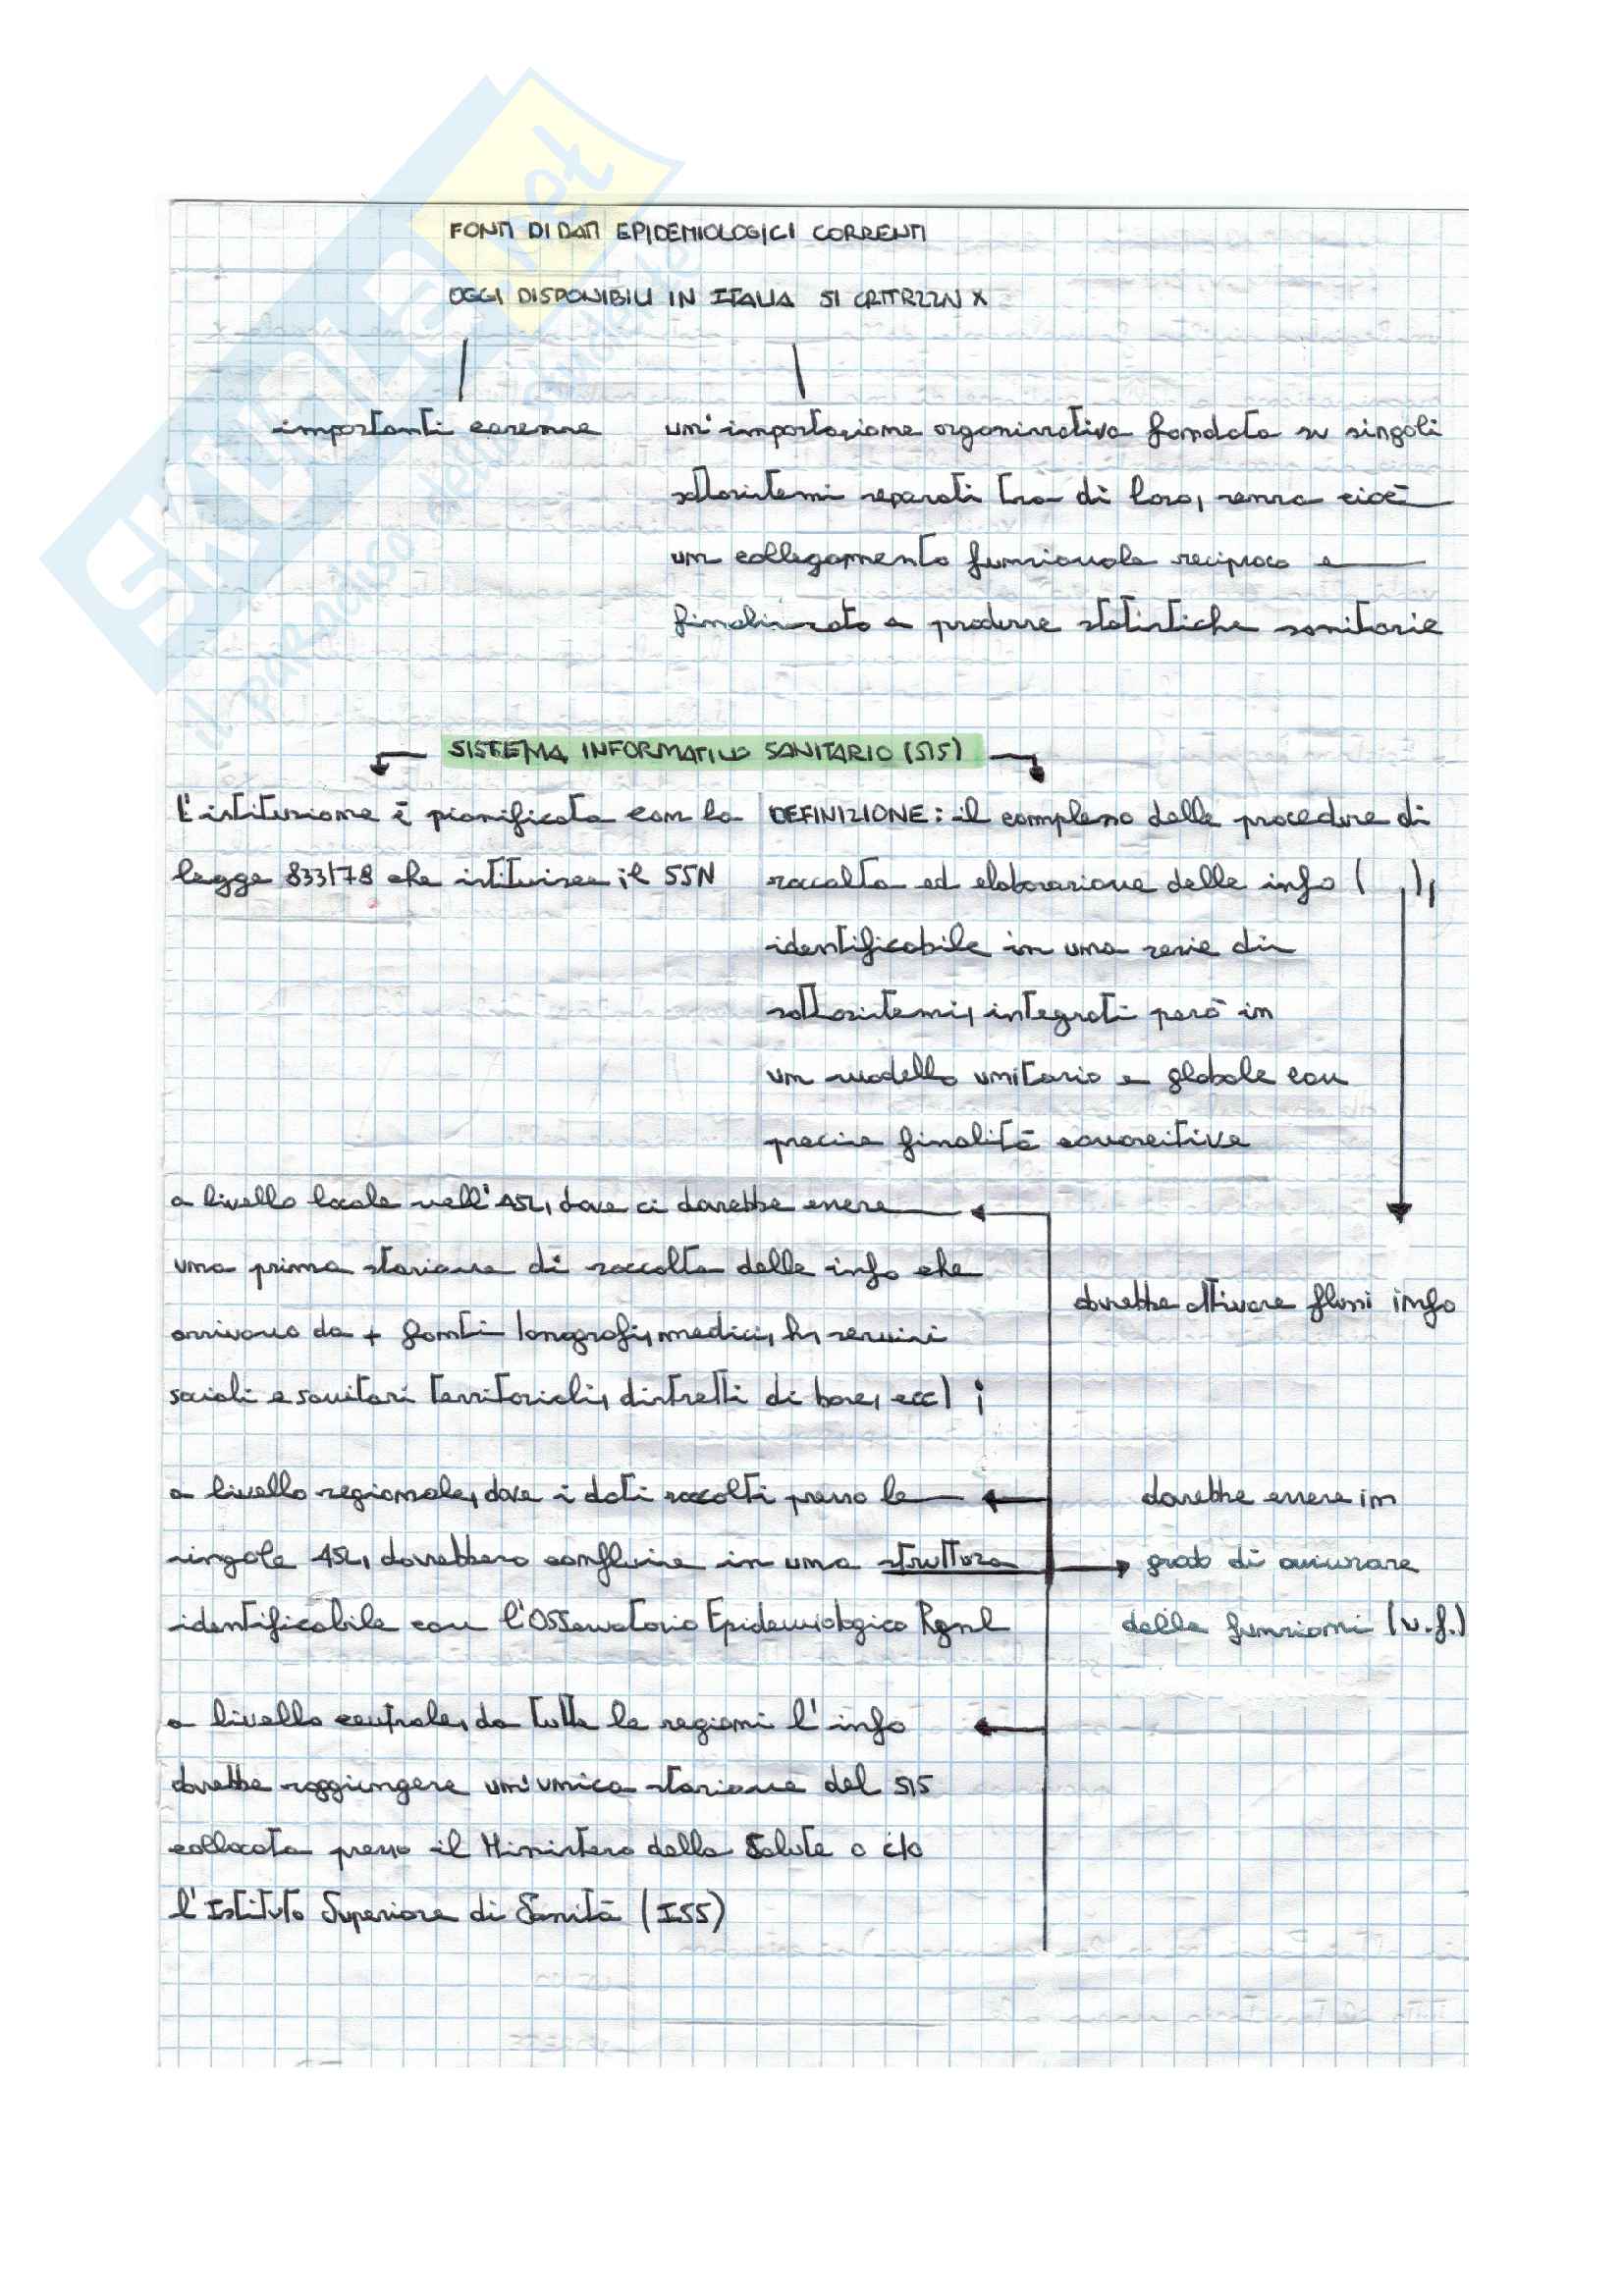 SKUOLA.net
il paradiso dello studente
FONTI DI DATI EPIDEMIOLOGICI CORRENTI
OGGI DISPONIBILI IN ITALIA SI CRTTRZZN X
importanti carenze
un'impostazione organizzativa fondata su singoli
sottosistemi separati tra di loro, senza cioè
un collegamento funzionale reciproco e
finalizzato a produrre statistiche sanitarie
SISTEMA INFORMATIVO SANITARIO (SIS)
l'istituzione è pianificata con la
legge 833/78 che istituisce il SSN
DEFINIZIONE: il complesso delle procedure di
raccolta ed elaborazione delle info ( , ),
identificabile in una serie di
sottosistemi, integrati però in
un modello unitario e globale con
precise finalità conoscitive
a livello locale nell'ASL, dove ci dovrebbe essere
una prima stazione di raccolta delle info che
arrivano da + fonti (anagrafi, medici, h, servizi
sociali e sanitari territoriali, distretti di base, ecc) ;
dovrebbe attivare flussi info
a livello regionale, dove i dati raccolti presso le
singole ASL, dovrebbero confluire in una struttura
identificabile con l'Osservatorio Epidemiologico Rgnl
dovrebbe essere in
grado di assicurare
delle funzioni (v.f.)
a livello centrale, da tutte le regioni l'info
dovrebbe raggiungere un'unica stazione del SIS
collocata presso il Ministero della Salute o c/o
l'Istituto Superiore di Sanità (ISS)